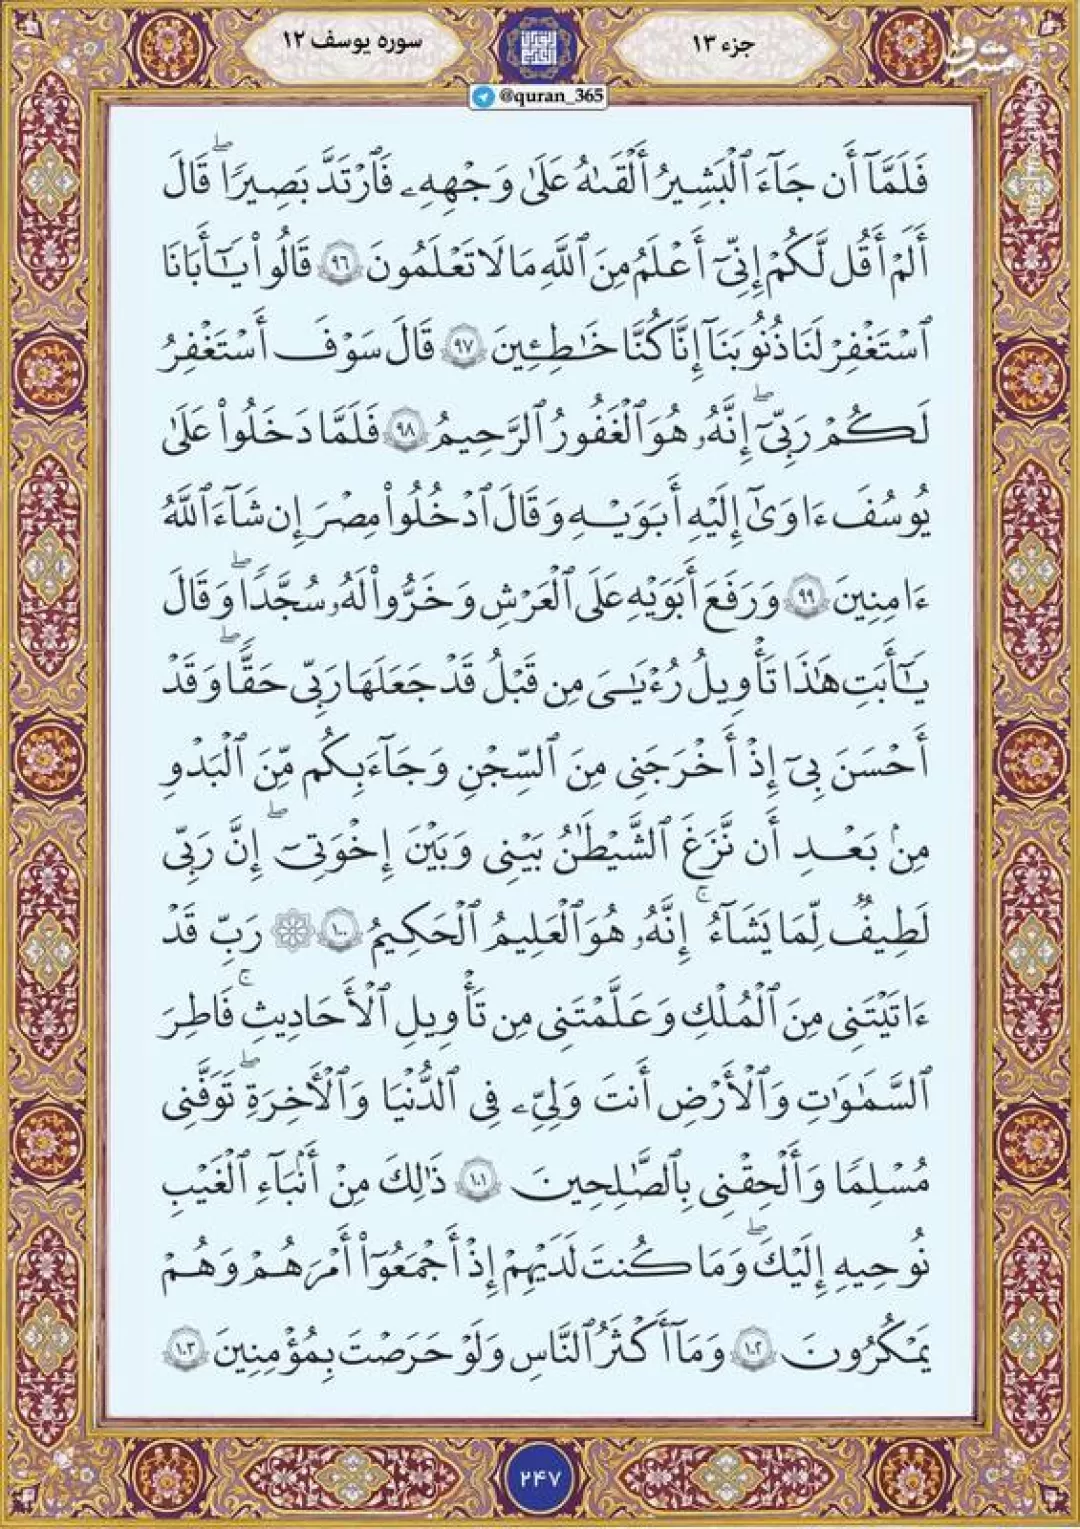 جزء ۱۳
سوره یوسف ۱۲
مشرق
mashreghnews
@quran_365
فَلَمَّآ أَن جَآءَ ٱلْبَشِيرُ أَلْقَىٰهُ عَلَىٰ وَجْهِهِۦ فَٱرْتَدَّ بَصِيرًۭا ۖ قَالَ
أَلَمْ أَقُل لَّكُمْ إِنِّىٓ أَعْلَمُ مِنَ ٱللَّهِ مَا لَا تَعْلَمُونَ ۹۶ قَالُوا۟ يَـٰٓأَبَانَا
ٱسْتَغْفِرْ لَنَا ذُنُوبَنَآ إِنَّا كُنَّا خَـٰطِـِٔينَ ۹۷ قَالَ سَوْفَ أَسْتَغْفِرُ
لَكُمْ رَبِّىٓ ۖ إِنَّهُۥ هُوَ ٱلْغَفُورُ ٱلرَّحِيمُ ۹۸ فَلَمَّا دَخَلُوا۟ عَلَىٰ
يُوسُفَ ءَاوَىٰٓ إِلَيْهِ أَبَوَيْهِ وَقَالَ ٱدْخُلُوا۟ مِصْرَ إِن شَآءَ ٱللَّهُ
ءَامِنِينَ ۹۹ وَرَفَعَ أَبَوَيْهِ عَلَى ٱلْعَرْشِ وَخَرُّوا۟ لَهُۥ سُجَّدًۭا ۖ وَقَالَ
يَـٰٓأَبَتِ هَـٰذَا تَأْوِيلُ رُءْيَـٰىَ مِن قَبْلُ قَدْ جَعَلَهَا رَبِّى حَقًّۭا ۖ وَقَدْ
أَحْسَنَ بِىٓ إِذْ أَخْرَجَنِى مِنَ ٱلسِّجْنِ وَجَآءَ بِكُم مِّنَ ٱلْبَدْوِ
مِنۢ بَعْدِ أَن نَّزَغَ ٱلشَّيْطَـٰنُ بَيْنِى وَبَيْنَ إِخْوَتِىٓ ۖ إِنَّ رَبِّى
لَطِيفٌۭ لِّمَا يَشَآءُ ۚ إِنَّهُۥ هُوَ ٱلْعَلِيمُ ٱلْحَكِيمُ ۱۰۰ ۞ رَبِّ قَدْ
ءَاتَيْتَنِى مِنَ ٱلْمُلْكِ وَعَلَّمْتَنِى مِن تَأْوِيلِ ٱلْأَحَادِيثِ ۚ فَاطِرَ
ٱلسَّمَـٰوَٰتِ وَٱلْأَرْضِ أَنتَ وَلِىِّۦ فِى ٱلدُّنْيَا وَٱلْـَٔاخِرَةِ ۖ تَوَفَّنِى
مُسْلِمًۭا وَأَلْحِقْنِى بِٱلصَّـٰلِحِينَ ۱۰۱ ذَٰلِكَ مِنْ أَنۢبَآءِ ٱلْغَيْبِ
نُوحِيهِ إِلَيْكَ ۖ وَمَا كُنتَ لَدَيْهِمْ إِذْ أَجْمَعُوٓا۟ أَمْرَهُمْ وَهُمْ
يَمْكُرُونَ ۱۰۲ وَمَآ أَكْثَرُ ٱلنَّاسِ وَلَوْ حَرَصْتَ بِمُؤْمِنِينَ ۱۰۳
۲۴۷